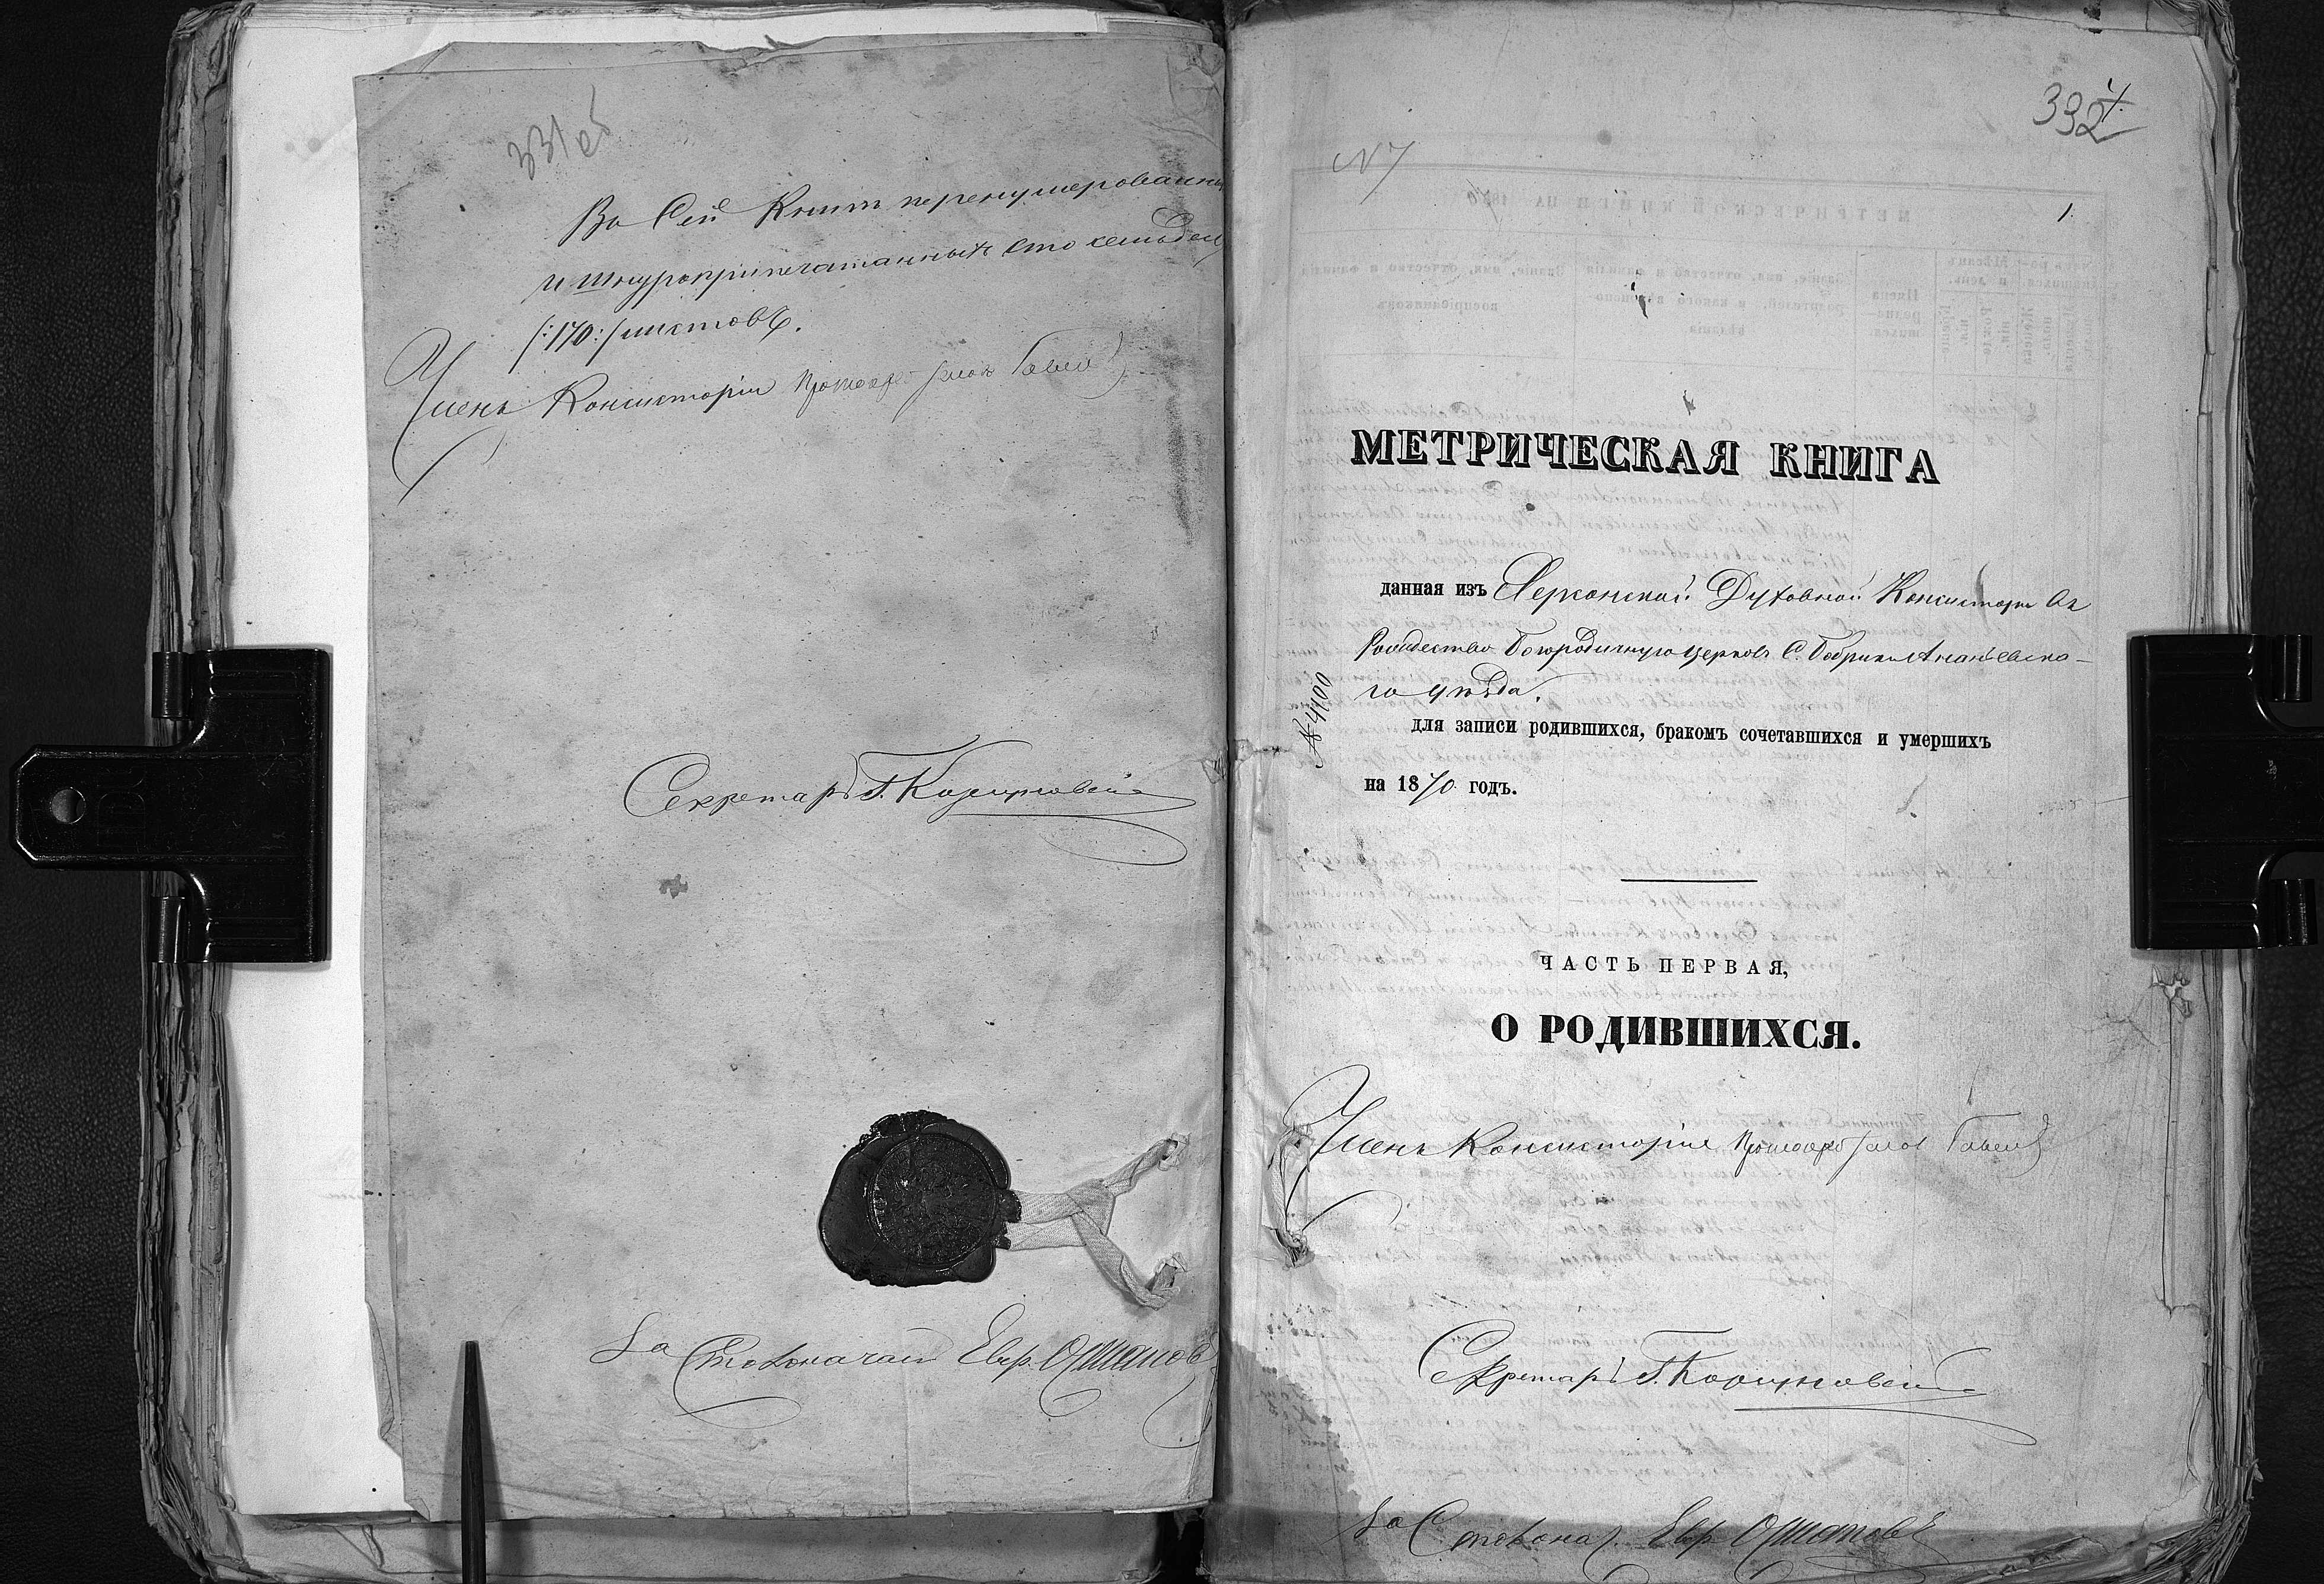 331 об
Во Сей Книге перенумерованны
и шнуроприпечатанныхъ сто семьдес
/:170:/ листовъ.
Членъ Консисторіи Протоіерей
Секретарь Г.
За Столоначал Евр. Ошановъ
332
№ 7
1.
МЕТРИЧЕСКАЯ КНИГА
данная изъ Херсонской Духовной Консисторіи Въ
Рождество Богородичную церковь С. Бобрика Ананьевска-
го уѣзда.
№ 4100
для записи родившихся, бракомъ сочетавшихся и умершихъ
на 1870 годъ.
ЧАСТЬ ПЕРВАЯ,
О РОДИВШИХСЯ.
Членъ Консисторіи Протоіерей
Секретарь Г.
За Столонач. Евр. Ошановъ